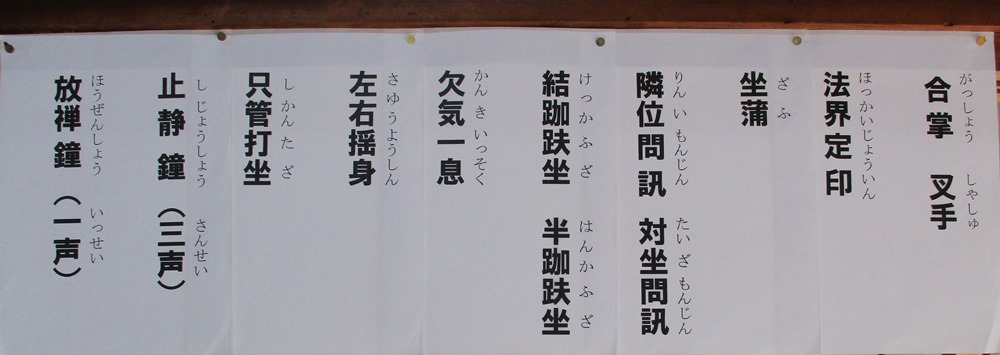 がっしょう　しゃしゅ
合掌　叉手
ほっかいじょういん
法界定印
ざふ
坐蒲
りんいもんじん　たいざもんじん
隣位問訊　対坐問訊
けっかふざ　はんかふざ
結跏趺坐　半跏趺坐
かんきいっそく
欠気一息
さゆうようしん
左右揺身
しかんたざ
只管打坐
しじょうしょう　さんせい
止静鐘（三声）
ほうぜんしょう　いっせい
放禅鐘（一声）